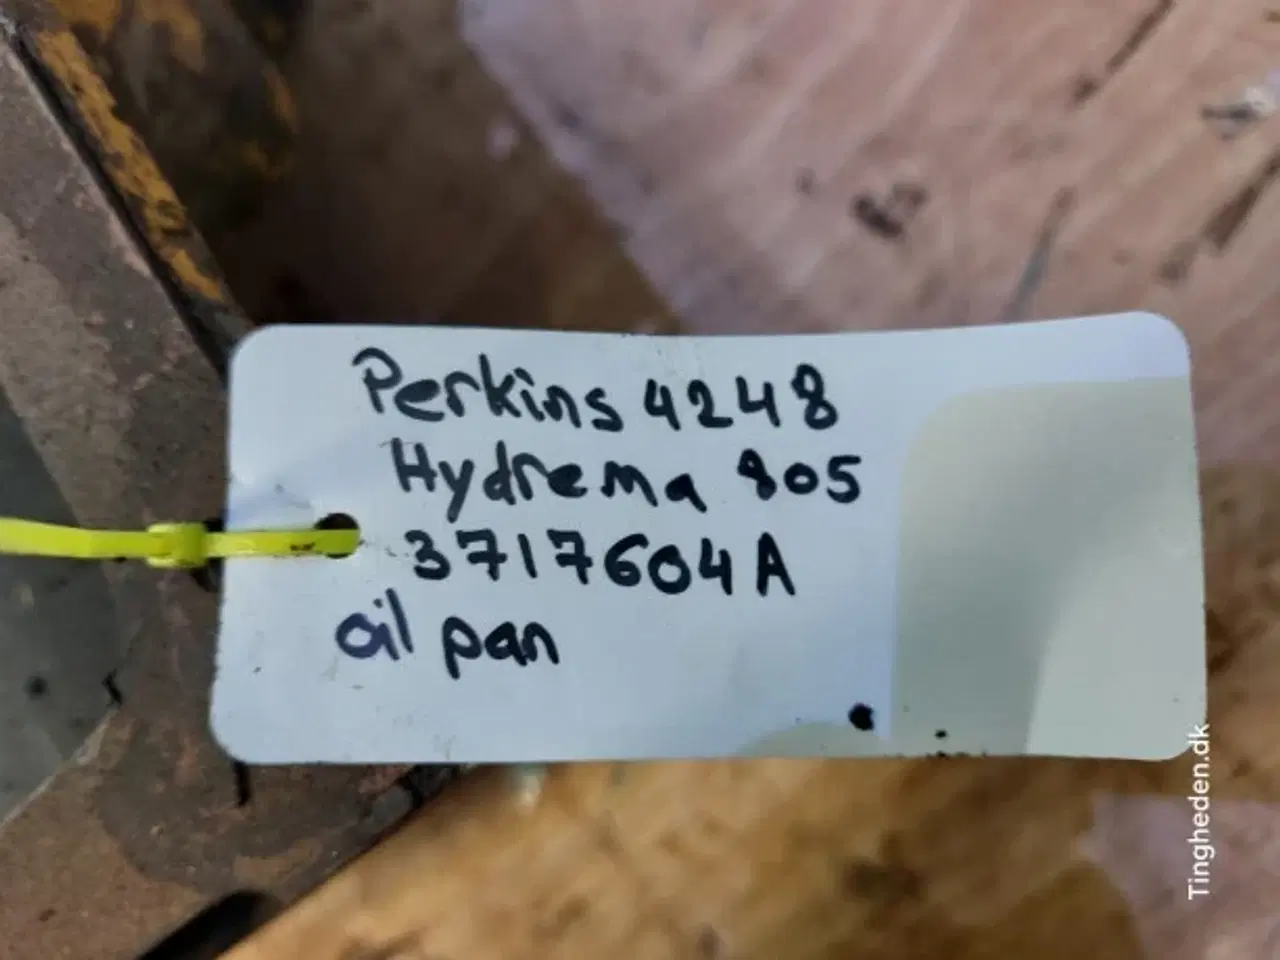 Perkins 4248
Hydrema 805
3717604A
oil pan
Tingheden.dk